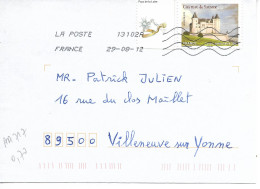 LA POSTE 13102A
FRANCE 29-08-12
MR. Patrick JULIEN
16 rue du clos Maillet
89500 Villeneuve sur Yonne